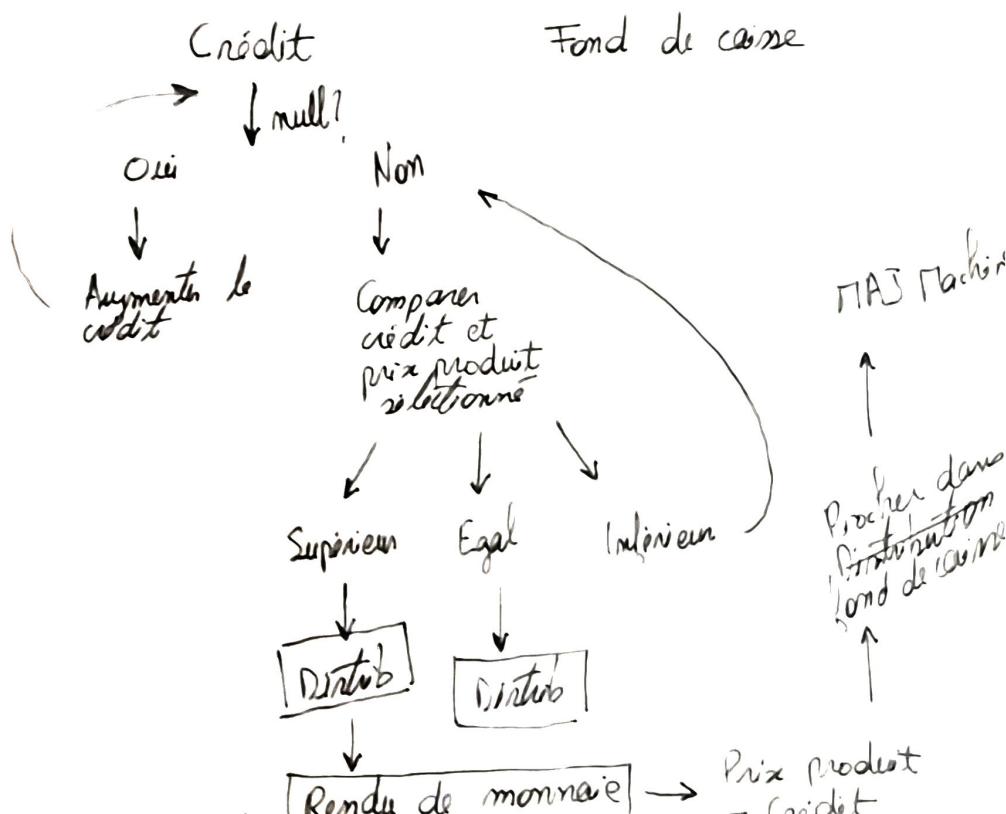 Crédit
Fond de caisse
null?
Oui
Non
Augmenter le
crédit
Comparer
crédit et
prix produit
sélectionné
MAJ Machine
Supérieur
Egal
Inférieur
Piocher dans
Distribution
fond de caisse
Distrib
Distrib
Rendu de monnaie
Prix produit
- Crédit